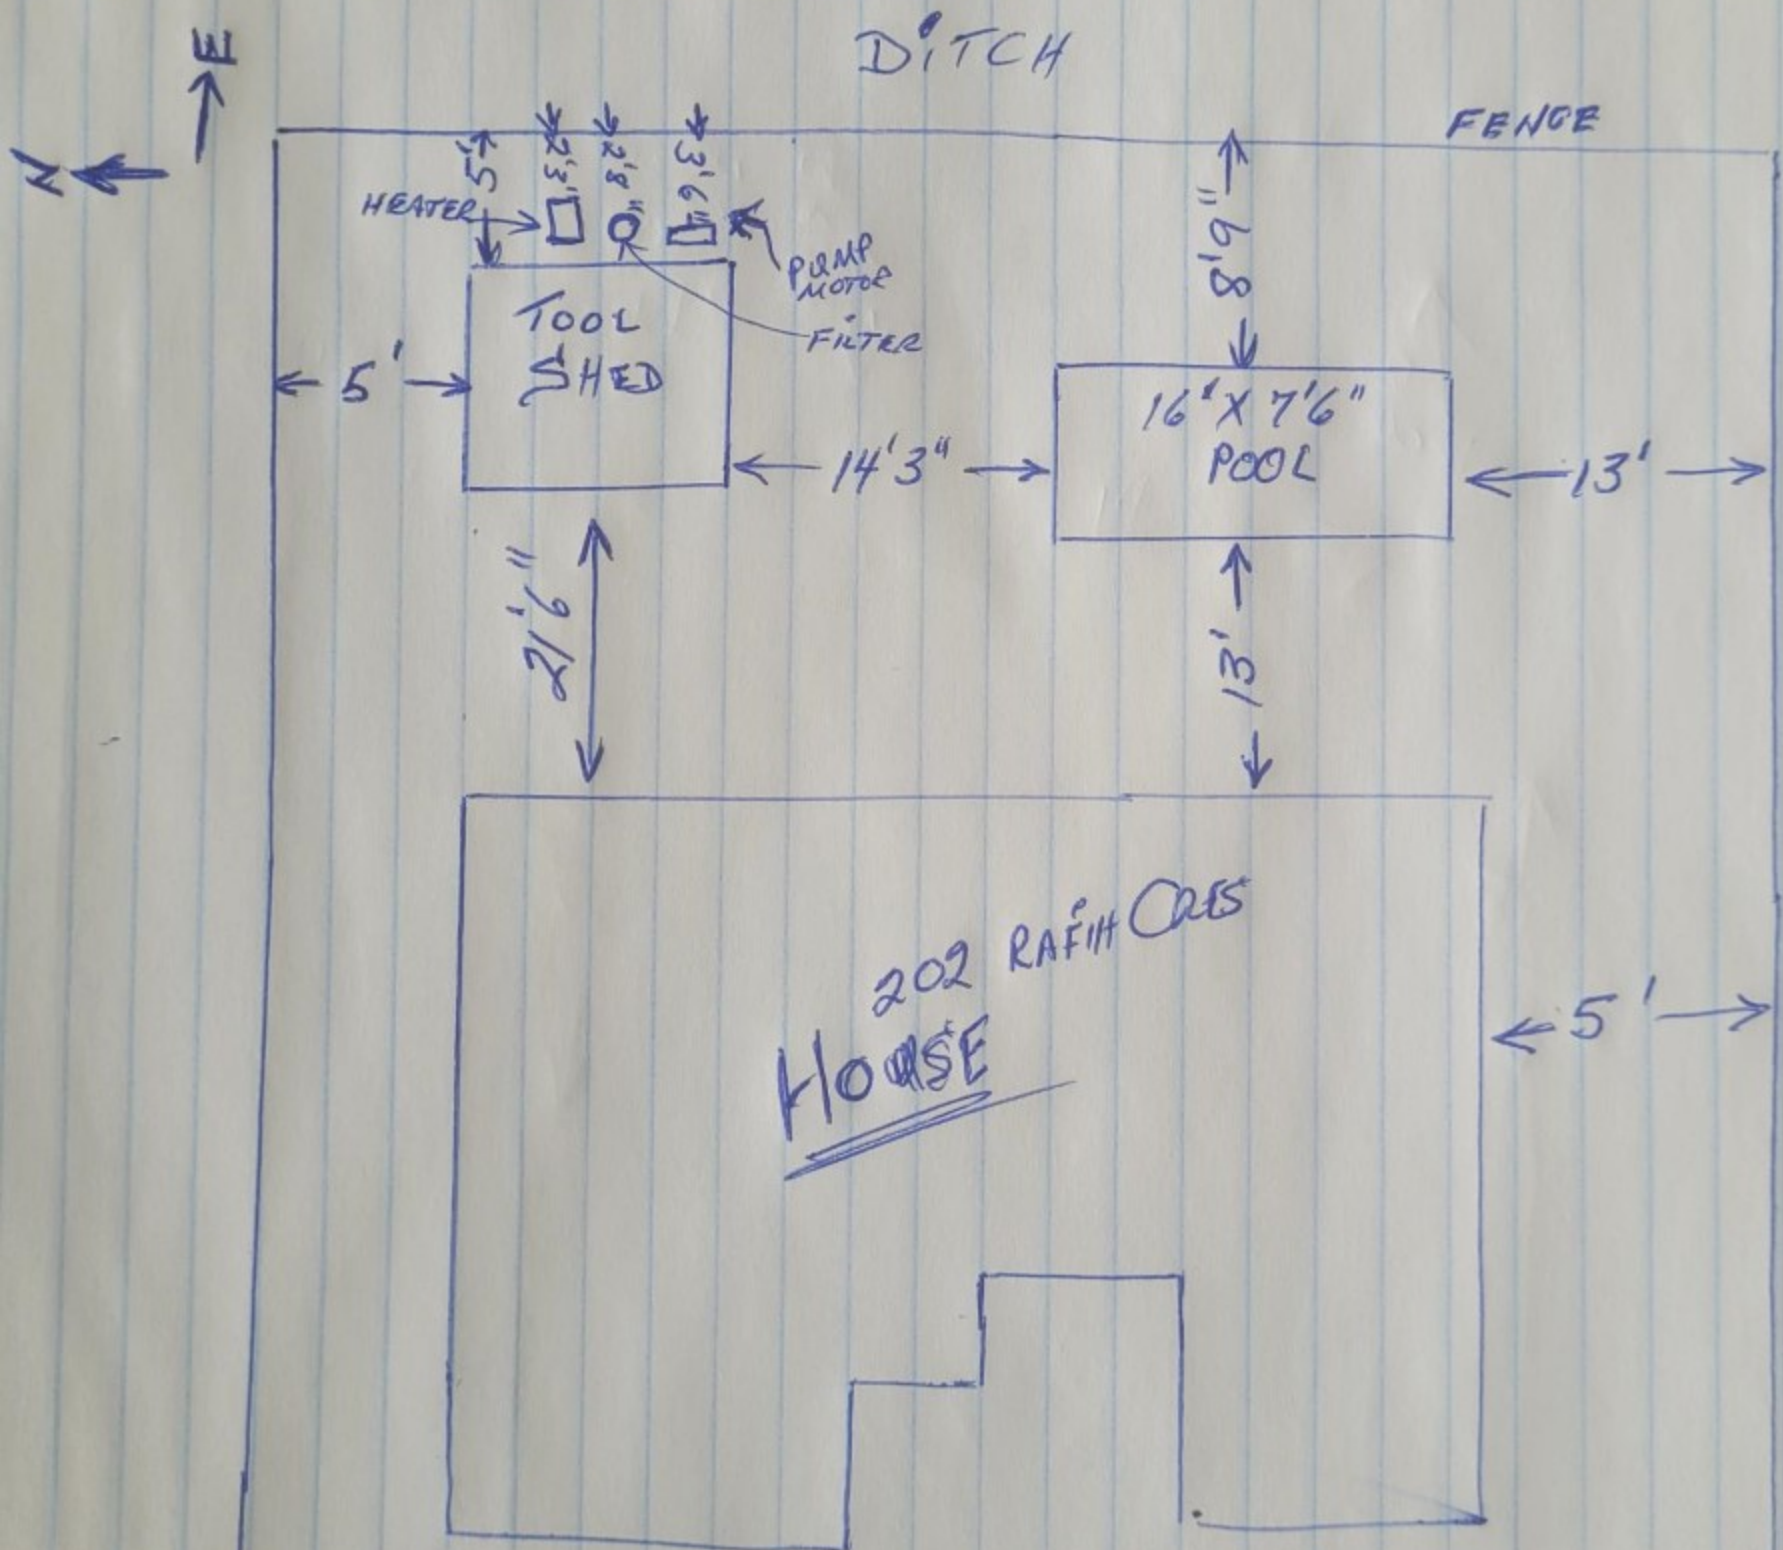 DiTCH
E
N
FENCE
5'
2'3"
2'8"
3'6"
8'9"
HEATER
PUMP
MOTOR
FILTER
TOOL
SHED
5'
16' X 7'6"
POOL
14'3"
13'
21'6"
13'
202 RAFiH CRES
HOUSE
5'